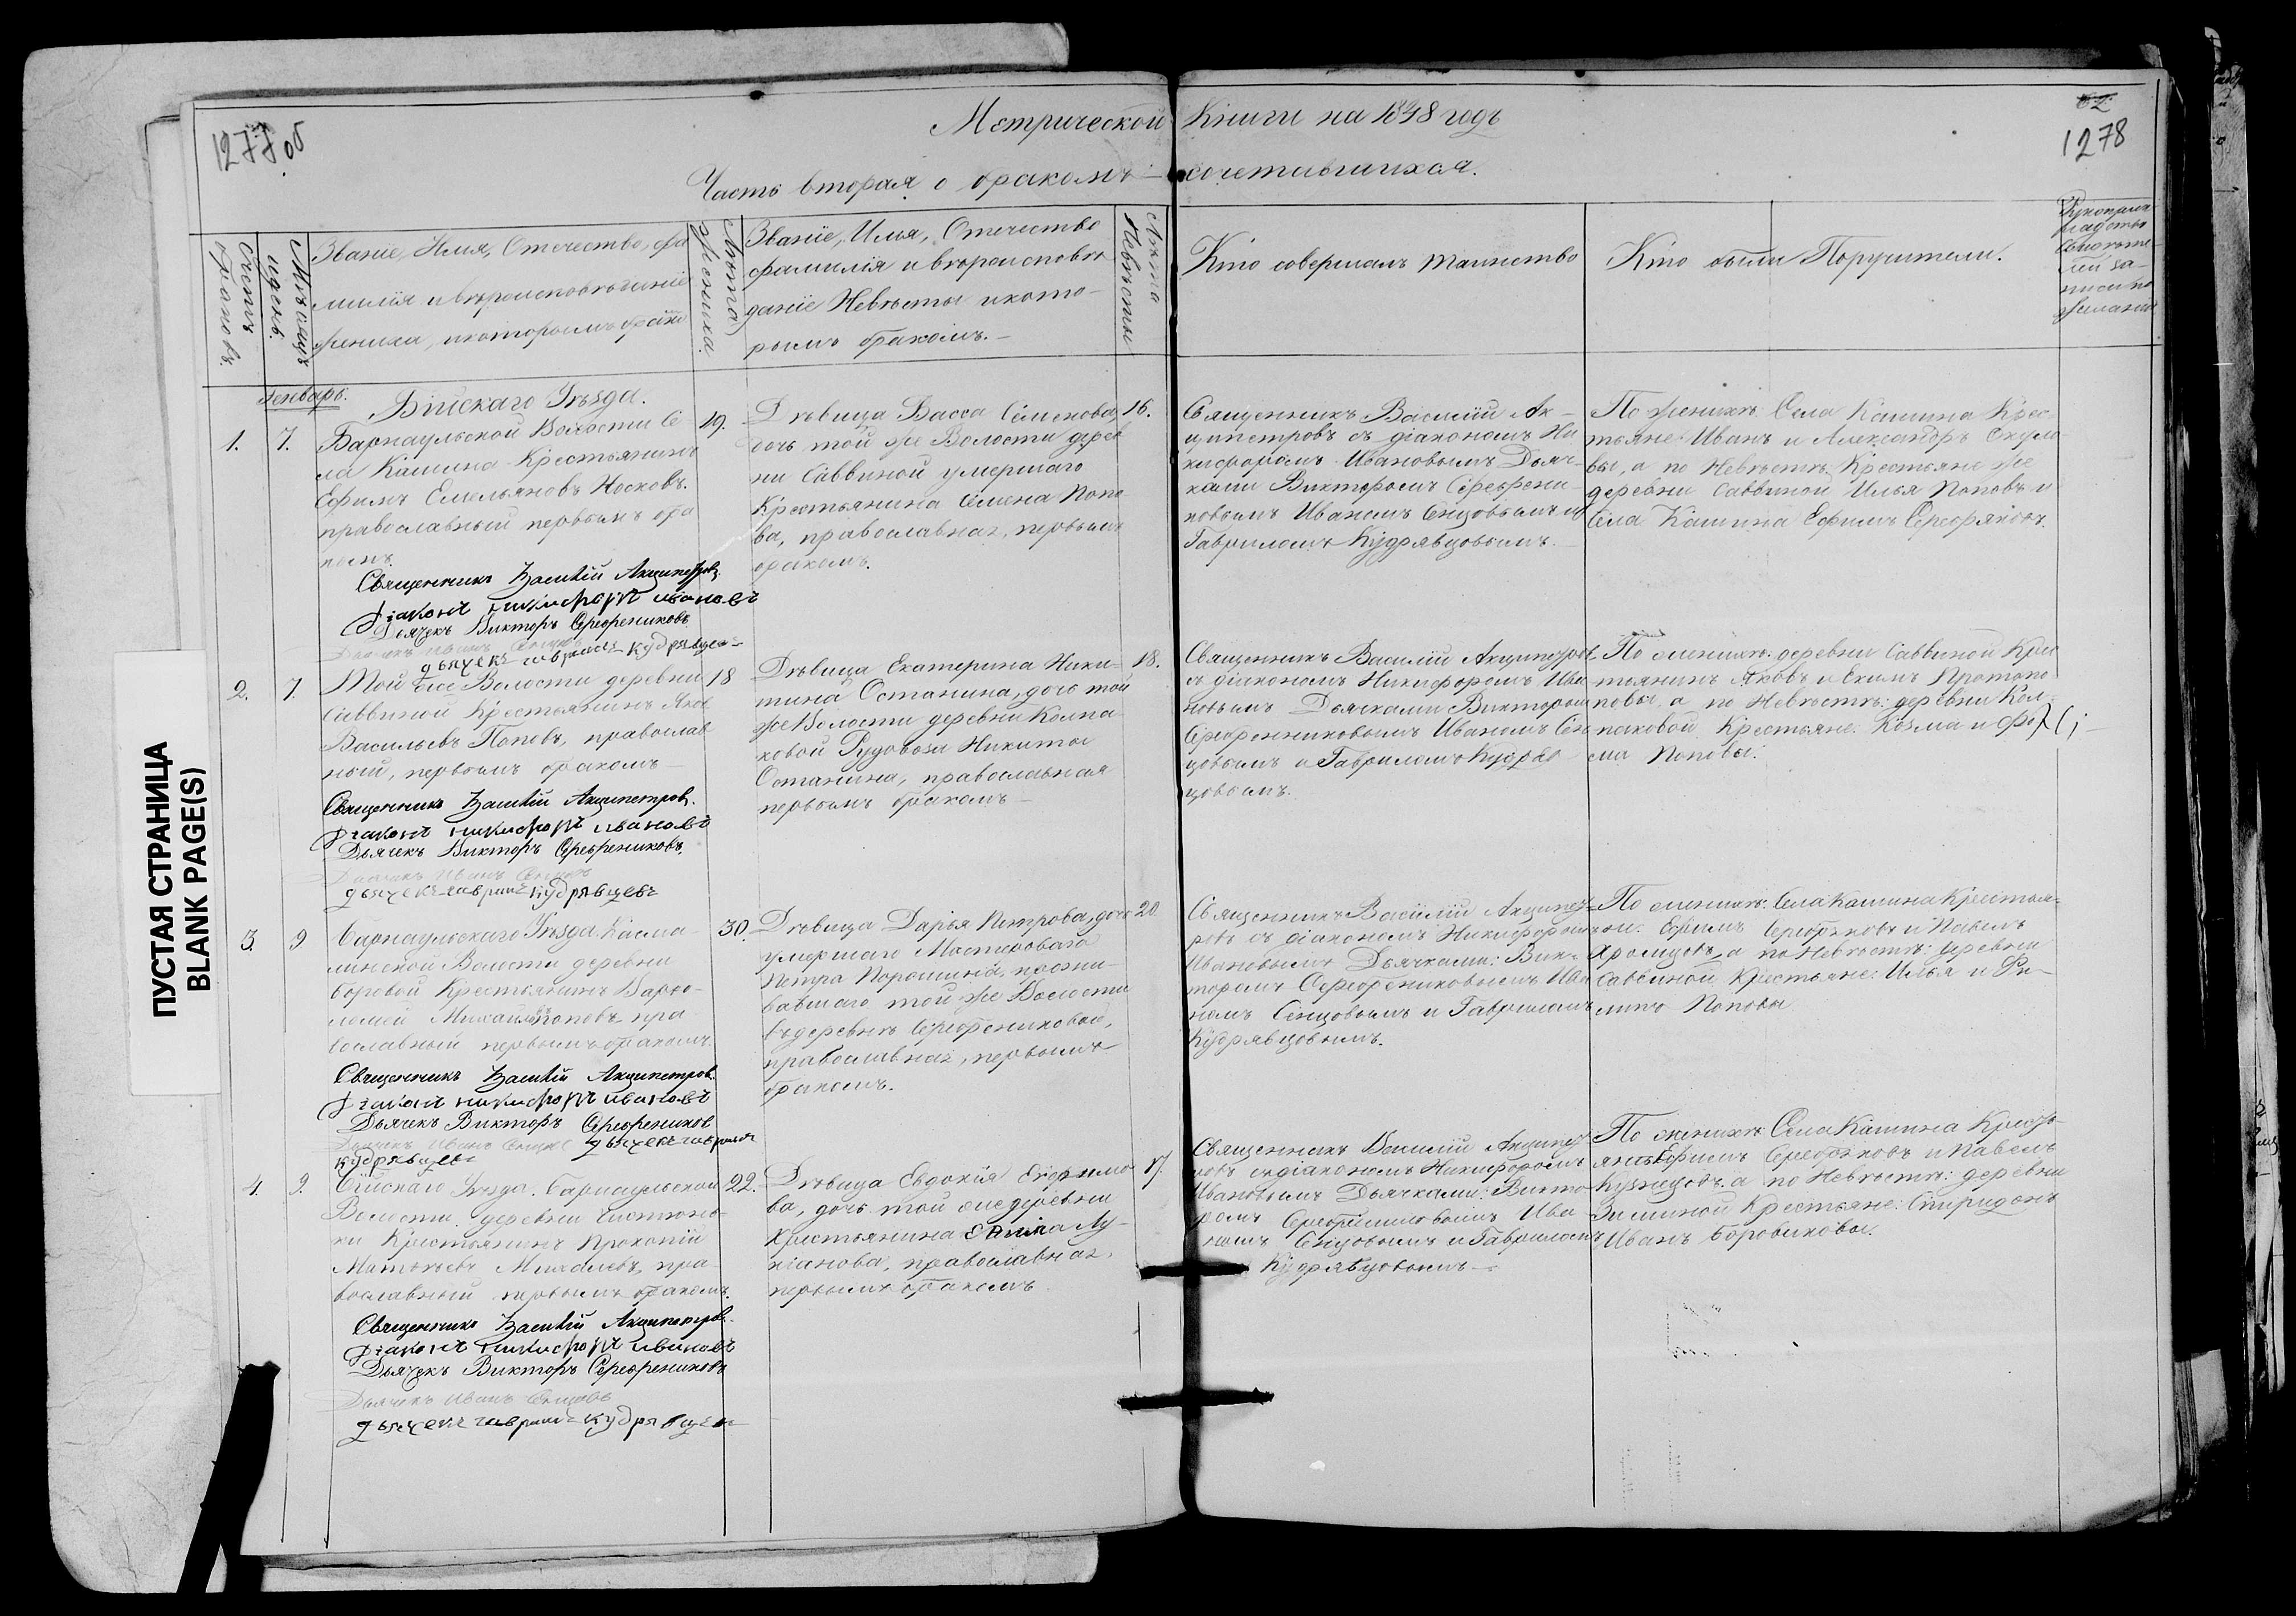 1277об
62
1278
Метрической Книги на 1848 годъ
Часть вторая о бракомъ сочетавшихся.
Счетъ браковъ.
Месяцъ и день.
Званіе, Имя, Отечество, фа
милія и вѣроисповѣданіе
жениха, и которымъ бракомъ
Лѣта жениха.
Званіе, Имя, Отечество
фамилія и вѣроисповѣ
даніе Невѣсты и кото-
рымъ бракомъ.-
Лѣта Невѣсты
Кто совершалъ таинство
Кто были Поручители.
ПУСТАЯ СТРАНИЦА
BLANK PAGE(S)
Генварь.
Бійскаго Уѣзда.
1.
7.
Барнаульской Волости Се
ла Кашина Крестьянинъ
Ефимъ Емельяновъ Носковъ.
православный первымъ бра
комъ.
Священникъ Василій Акципетровъ.
Діаконъ никифоръ ивановъ
Дьячекъ Викторъ Серебрениковъ
Дьячекъ Иванъ Сенцовъ
дьячекъ гаврилъ кудрявцевъ
19.
Дѣвица Васса Семенова,
дочь той же Волости дерев
ни Саввиной умершаго
Крестьянина Семена Попо
ва, православная, первымъ
бракомъ.
16.
Священникъ Василій Ак-
ципетровъ съ діакономъ Ни
кифоромъ Ивановымъ Дьяч-
ками Викторомъ Серебрени-
ковымъ Иваномъ Сенцовымъ и
Гавриломъ Кудрявцовымъ.-
По женихѣ: Села Кашина Крес
тьяне Иванъ и Александръ Скуло
вы, а по Невѣстѣ: Крестьяне же
деревни Саввиной Илья Поповъ и
Села Кашина Ефимъ Серебряковъ.
2.
7.
Той же Волости деревни
Саввиной Крестьянинъ Яков
Васильевъ Поповъ, православ
ный, первымъ бракомъ-
Священникъ Василій Акципетровъ.
Діаконъ никифоръ ивановъ
Дьячекъ Викторъ Серебрениковъ.
Дьячекъ Иванъ Сенцовъ
дьячекъ гаврилъ кудрявцевъ
18
Дѣвица Екатерина Ники-
тина Останина, дочь той
же Волости деревни Колпа
ковой Рудовоза Никиты
Останина, православная
первымъ бракомъ-
18.
Священникъ Василій Акципетров
съ діакономъ Никифоромъ Ива
новымъ Дьячками Викторомъ
Серебренниковымъ Иваномъ Сен
цовымъ и Гавриломъ Кудряв
цовымъ.
По женихѣ: деревни Саввиной Крес
тьянинъ Яковъ и Екимъ Протопо
повы, а по Невѣстѣ: деревни Кол-
паковой Крестьяне: Козма и Фо
ма Поповы.
3
9
Барнаульскаго Уѣзда Касма-
линской Волости деревни
Боровой Крестьянинъ Варфо-
ломей Михайловъ Поповъ пра-
вославный первымъ бракомъ.
Священникъ Василій Акципетров.
Діаконъ никифоръ ивановъ
Дьячекъ Викторъ Серебрениковъ
Дьячекъ Иванъ Сенцовъ дьячекъ гаврилъ
кудрявцевъ
30.
Дѣвица Дарья Петрова, дочь
умершаго Мастероваго
Петра Порошина, прожи-
вавшаго той же Волости
въ деревнѣ Серебрениковой,
православная, первымъ
бракомъ.
20.
Священникъ Василій Акципет-
ровъ съ діакономъ Никифоромъ
Ивановымъ Дьячками: Вик-
торомъ Серебрениковымъ Ива
номъ Сенцовымъ и Гавриломъ
Кудрявцовымъ.
По женихѣ: Села Кашина Крестья-
не: Ефимъ Серебряковъ и Павелъ
а по Невѣстѣ: деревни
Саввиной Крестьяне: Илья и Фи-
липъ Поповы
4.
9.
Бійскаго Уѣзда. Барнаульской
Волости деревни Чистюнь-
ки Крестьянинъ Прокопій
Матвѣевъ Михалевъ, пра-
вославный первымъ бракомъ.
Священникъ Василій Акципетровъ.
Діаконъ никифоръ ивановъ
Дьячекъ Викторъ Серебрениковъ
Дьячекъ Иванъ Сенцовъ
дьячекъ гаврилъ кудрявцевъ
22.
Дѣвица Евдокія Ефимо
ва, дочь той же деревни
Крестьянина Ефима Лу-
кіанова, православная,
первымъ бракомъ
17.
Священникъ Василій Акципет
ровъ съ діакономъ Никифоромъ
Ивановымъ Дьячками: Викто-
ромъ Серебренниковымъ Ива-
номъ Сенцовымъ и Гавриломъ
Кудрявцовымъ-
По женихѣ: Села Кашина Кресть-
яне: Ефимъ Серебряковъ и Павелъ
Кузнецовъ. а по Невѣстѣ: деревни
Зиминой Крестьяне: Спиридонъ
Иванъ Боровиковы.